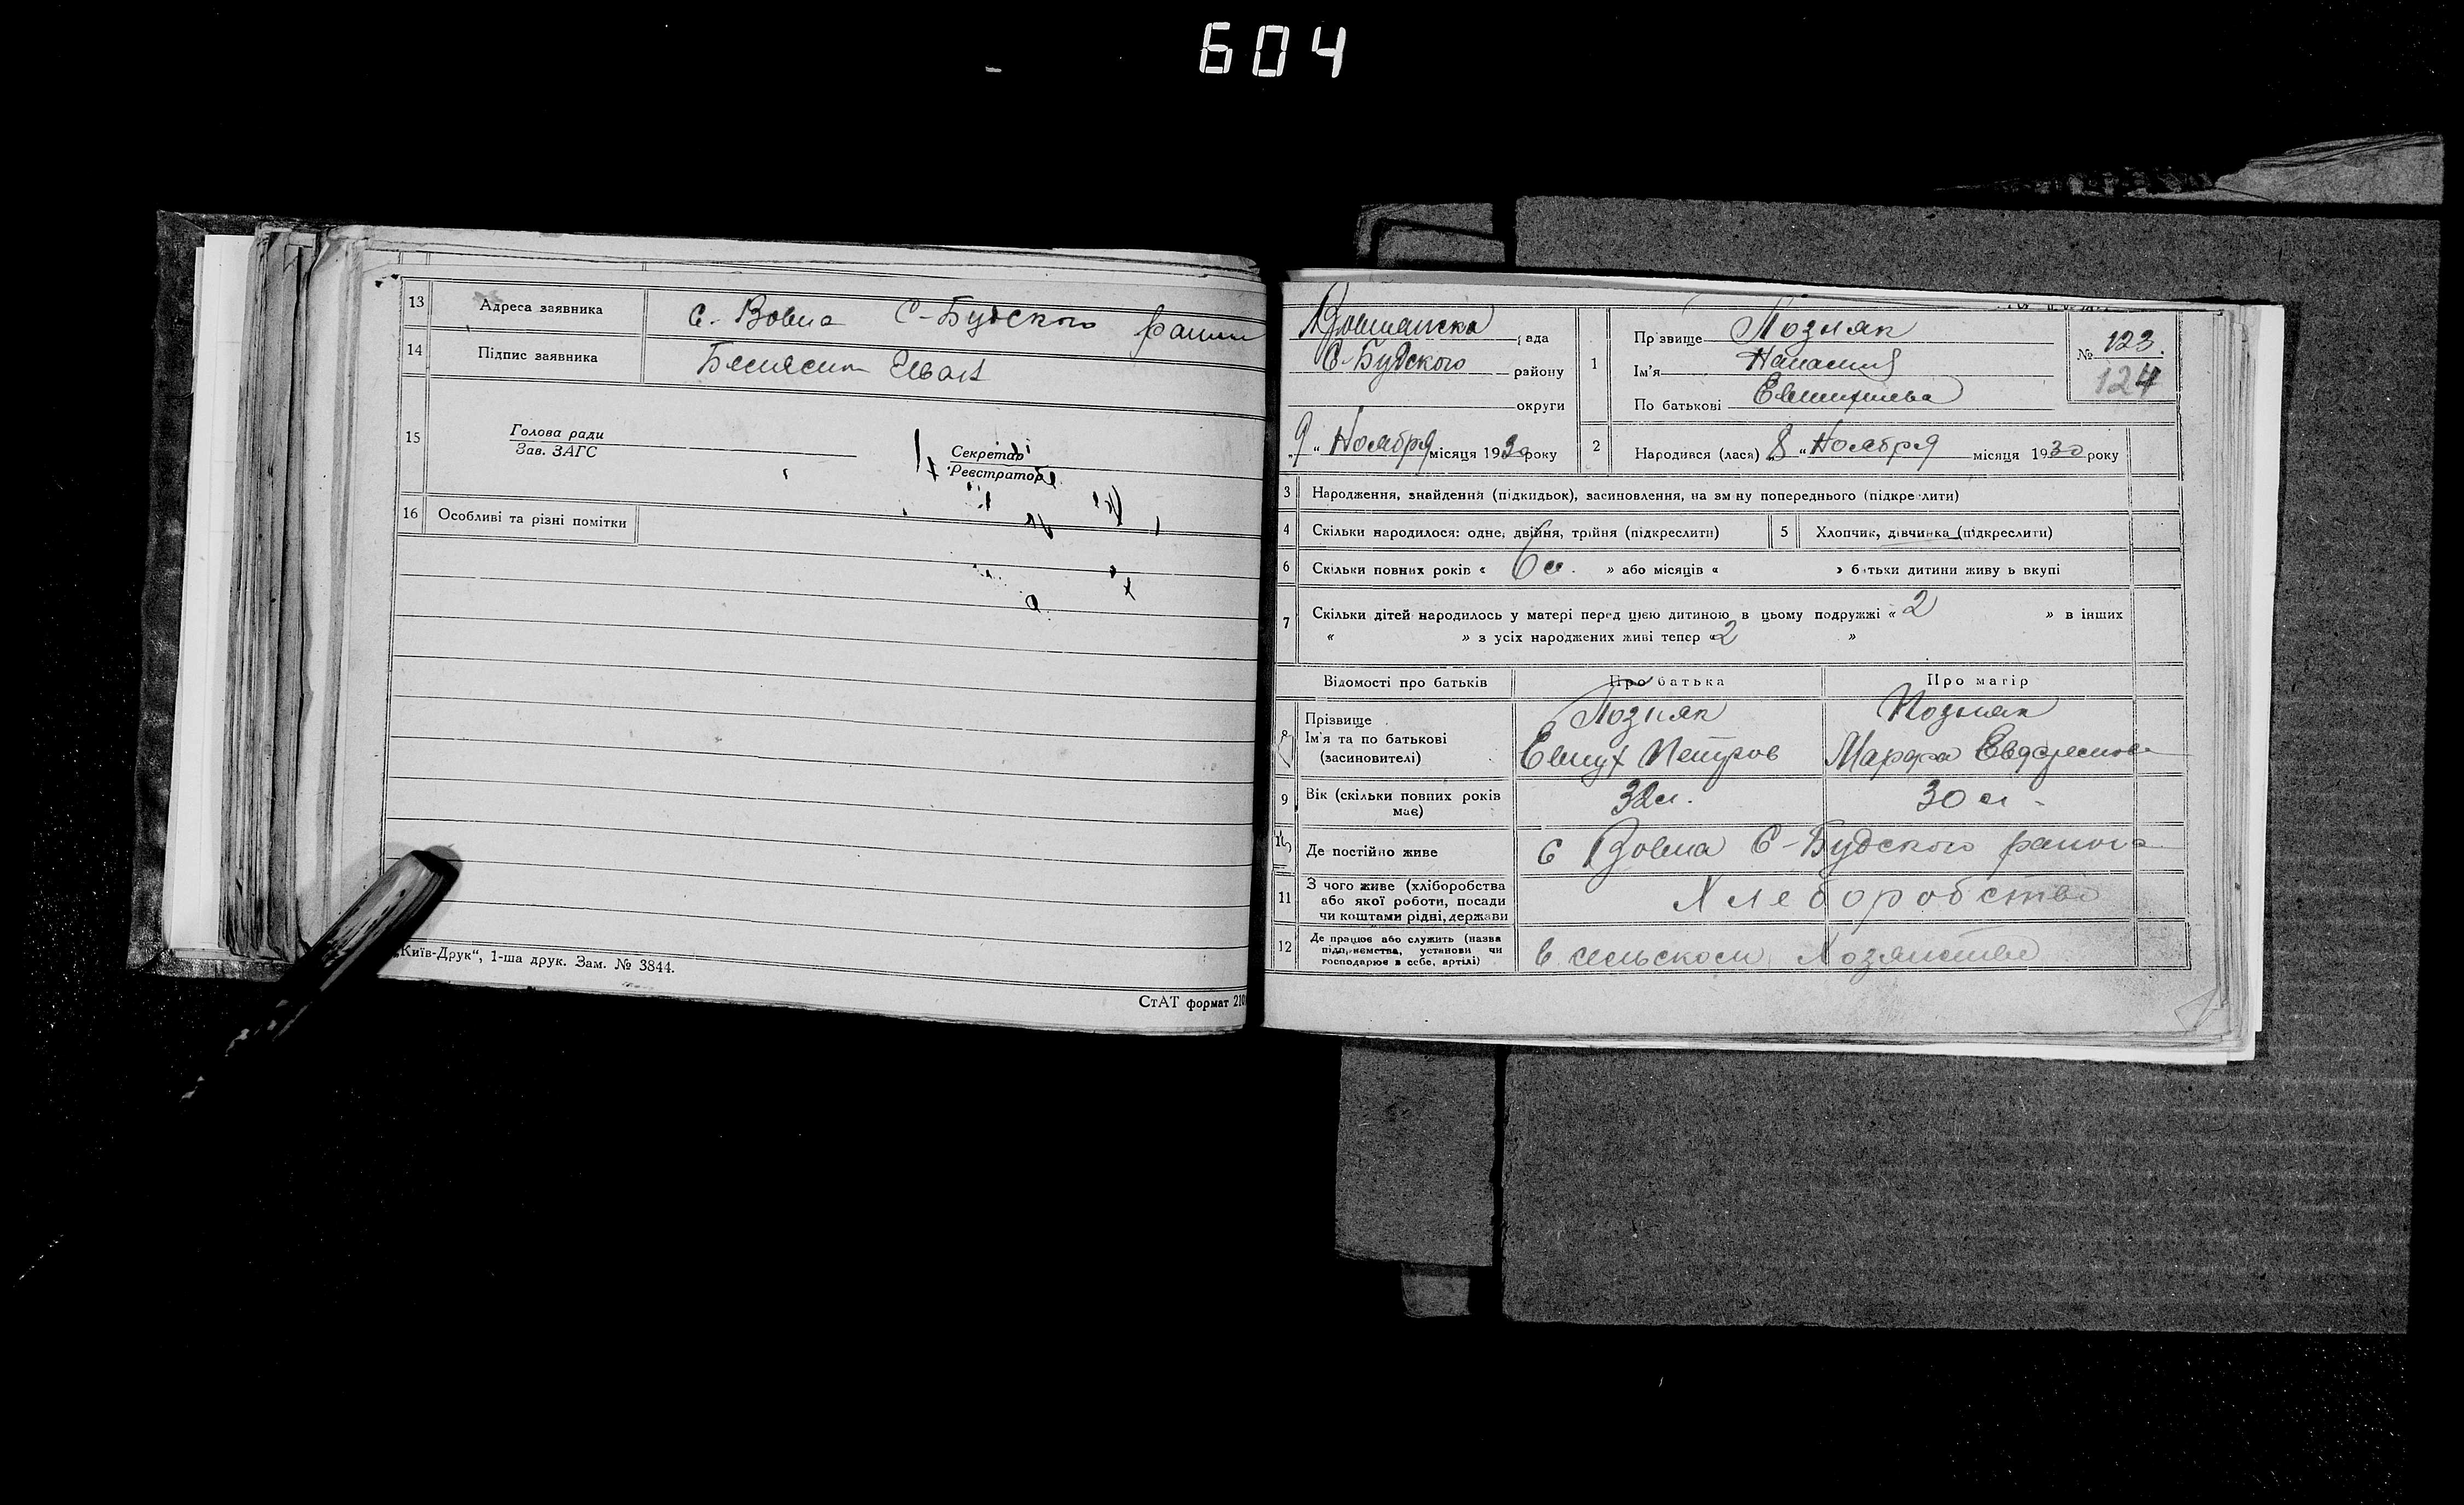 604
13 Адреса заявника с. Вовна С-Будского
14 Підпис заявника
15 Голова ради
Зав. ЗАГС
Секретар
Реєстратор
16 Особливі та різні помітки
„Київ-Друк“, 1-ша друк. Зам. № 3844.
СтАТ формат 210
рада
С-Будского району
округи
„9“ Ноября місяця 1930 року
1 Прізвище Позняк
Ім'я
По батькові
№ 123.
124
2 Народився (лася) „8“ Ноября місяця 1930 року
3 Народження, знайдення (підкидьок), засиновлення, на зміну попереднього (підкреслити)
4 Скільки народилося: одне, двійня, трійня (підкреслити)
5 Хлопчик, дівчинка (підкреслити)
6 Скільки повних років « 6 » або місяців « » батьки дитини живуть вкупі
7 Скільки дітей народилось у матері перед цією дитиною в цьому подружжі « 2 » в інших
« » з усіх народжених живі тепер « 2 »
Відомості про батьків Про батька Про матір
8 Прізвище Позняк Позняк
Ім'я та по батькові Евтух Петров Марфа
(засновителі)
9 Вік (скільки повних років має) 32 л. 30 л.
10 Де постійно живе с Вовна С-Будского района
11 З чого живе (хліборобства
або якої роботи, посади
чи коштами рідні, держави
Хлеборобство
12 Де працює або служить (назва
підприємства, установи чи
господарює в себе, артілі)
В сельском Хозяистве